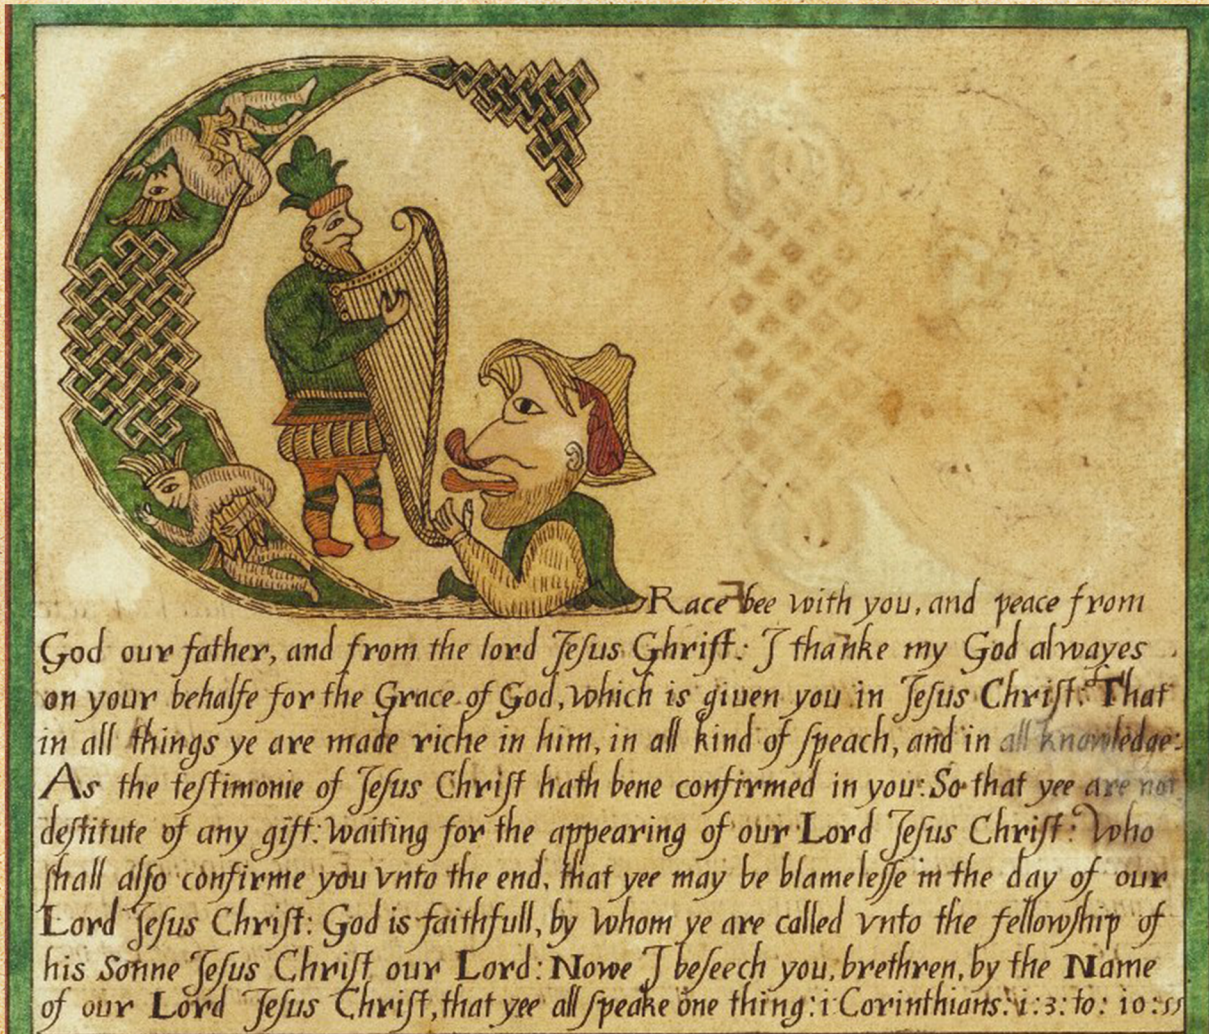 GRace bee with you, and peace from
God our father, and from the lord Jesus Ghrist: J thanke my God alwayes
on your behalfe for the Grace of God, which is giuen you in Jesus Christ: That
in all things ye are made riche in him, in all kind of speach, and in all knowledge:
As the testimonie of Jesus Christ hath bene confirmed in you: So that yee are not
destitute of any gift: waiting for the appearing of our Lord Jesus Christ: Who
shall also confirme you vnto the end, that yee may be blamelesse in the day of our
Lord Jesus Christ: God is faithfull, by whom ye are called vnto the fellowship of
his Sonne Jesus Christ our Lord: Nowe J beseech you, brethren, by the Name
of our Lord Jesus Christ, that yee all speake one thing: i Corinthians: i: 3: to: 10: